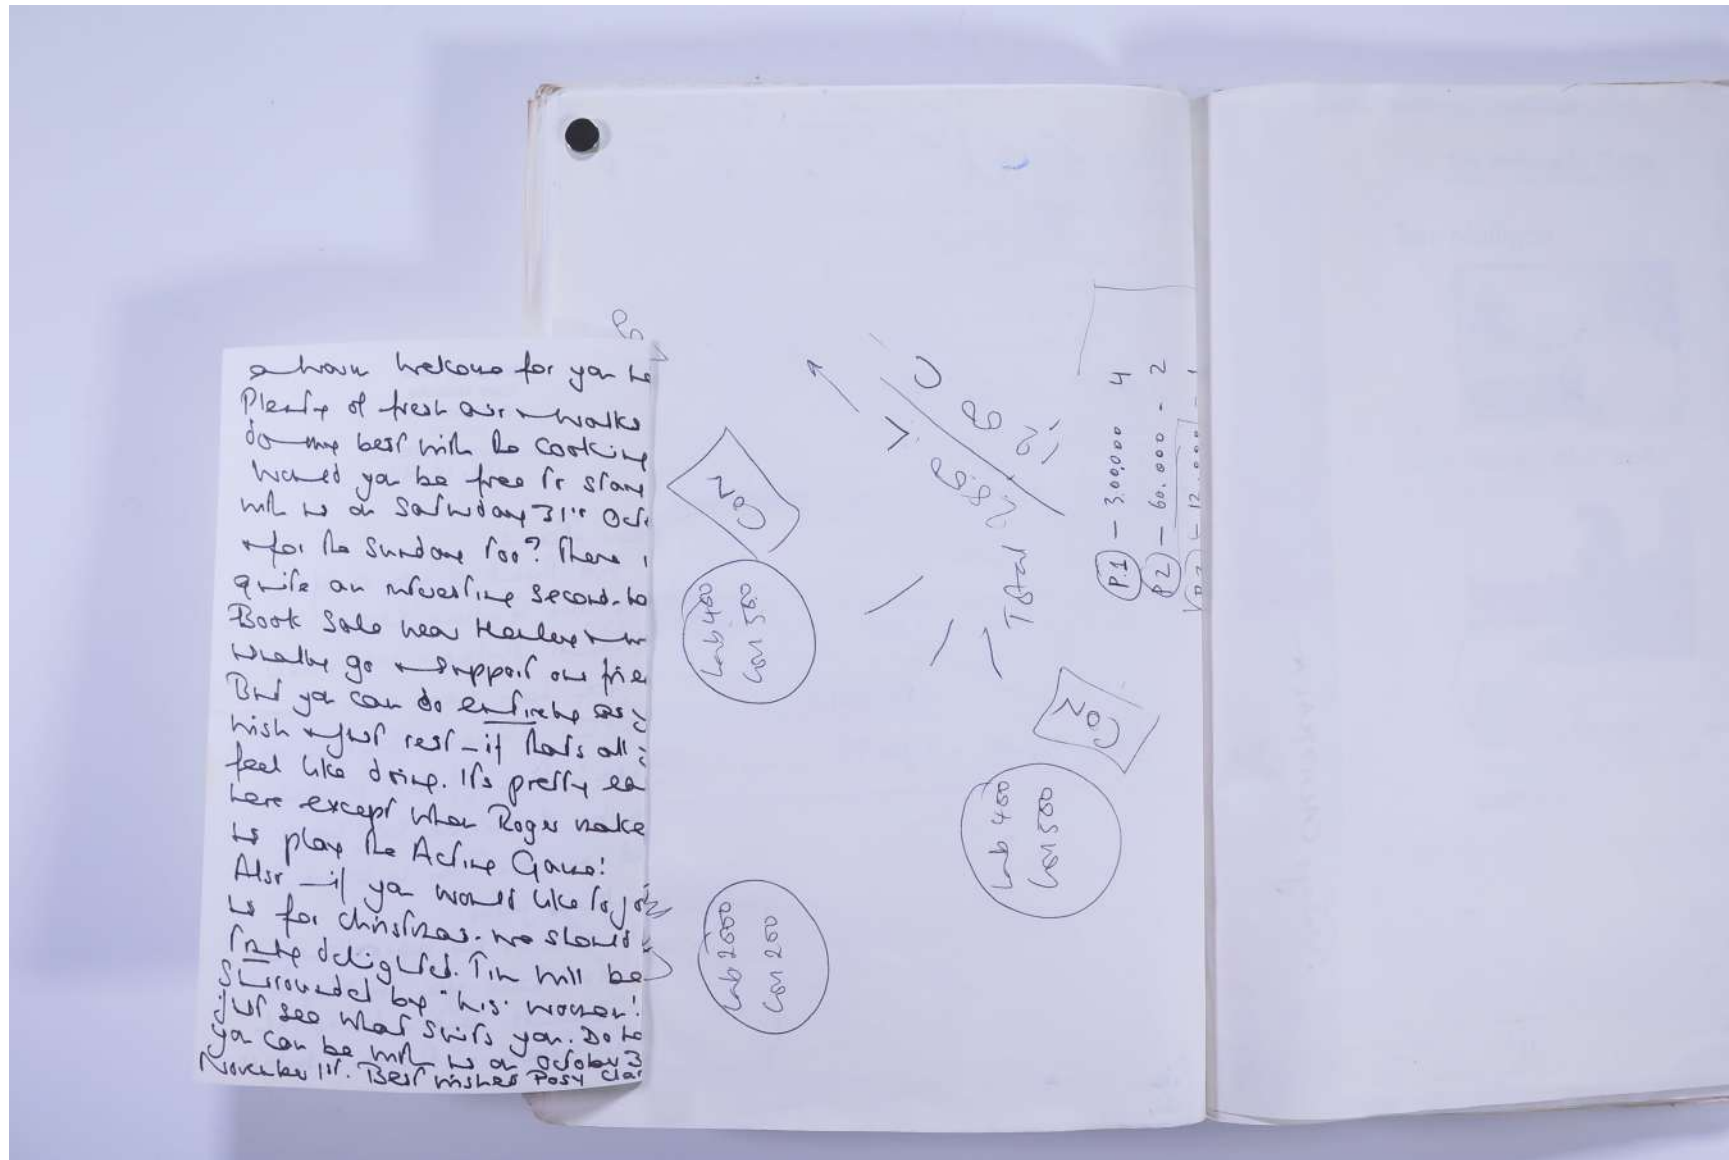 a warm welcome for you he
Plenty of fresh air & walks
do my best with the cooking
Would you be free to stay
with us on Saturday 31st Oct
& for the Sunday too? There
quite an interesting second-ha
Book Sale near Henley &
go & support our frie
But you can do entirely as y
wish & just rest - if that's all
feel like doing. It's pretty ea
here except when Roger make
us play the Acting Game!
Also - if you would like to jo
us for Christmas. we should
delighted. Tim will be
surrounded by "his" women!
just see what suits you. Do ho
you can be with us on October 3
November 1st. Best wishes Posy Cla
B
NCO
Lab 400
Con 500
Lab 2000
Con 200
C
B
Total
NCO
Lab 400
Con 500
P.1 - 300,000 4
P2 - 60.000 - 2
12.000 - 1